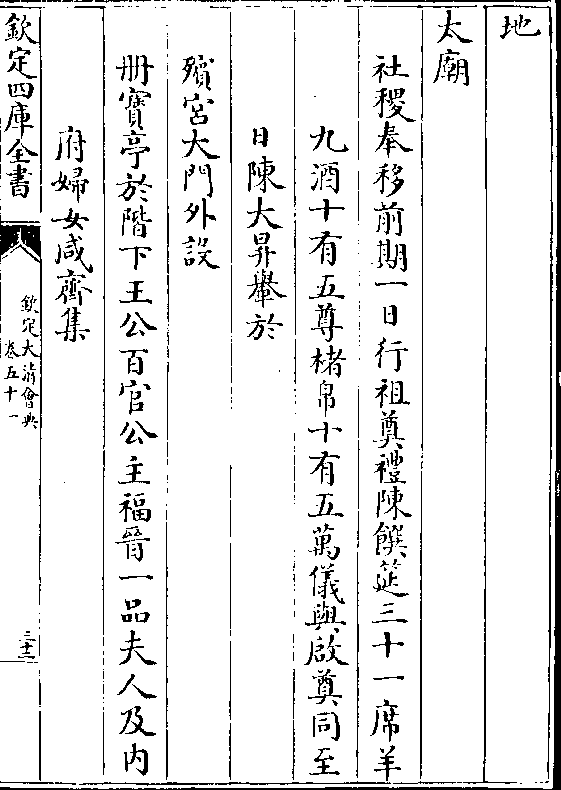 地
太廟
社稷奉移前期一日行祖奠禮陳饌筵三十一席羊
九酒十有五尊楮帛十有五萬儀與啟奠同至
日陳大昇轝於
殯宮大門外設
冊寶亭於階下王公百官公主福晉一品夫人及內
府婦女咸齊集
欽定四庫全書
欽定大清會典
卷五十一
三十二